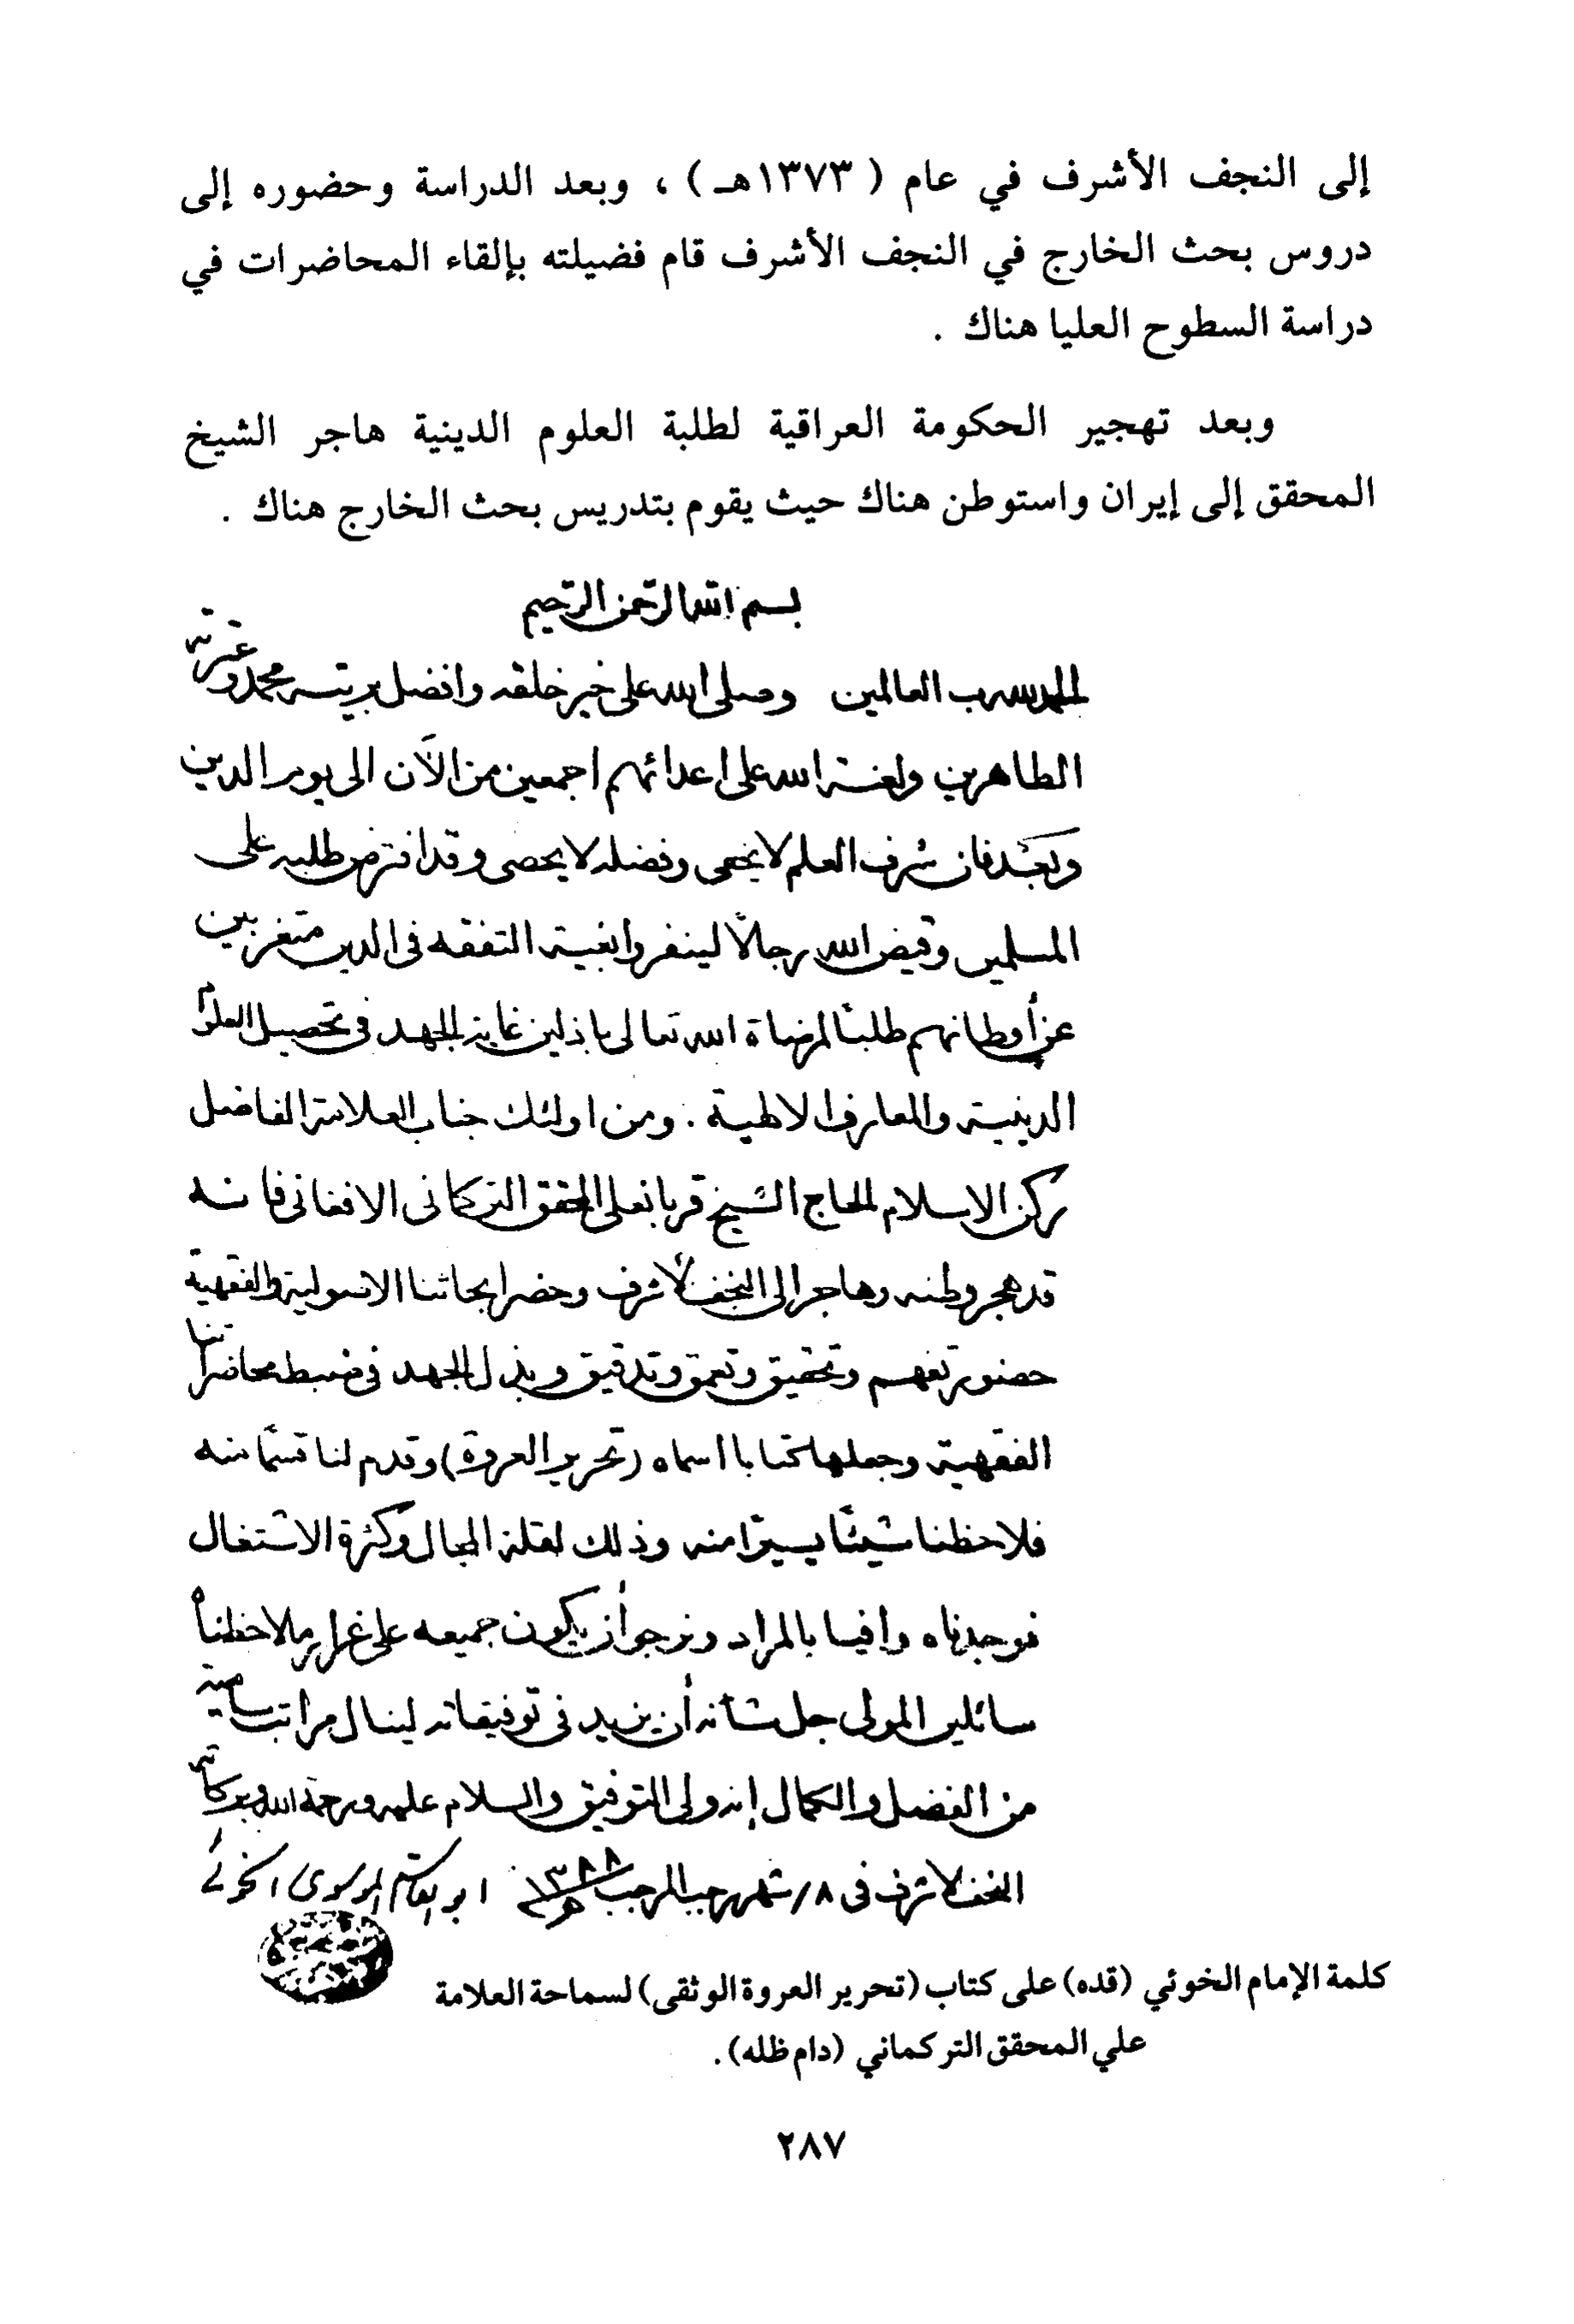 إلى النجف الأشرف في عام ( ١٣٧٣هـ ) ، وبعد الدراسة وحضوره إلى
دروس بحث الخارج في النجف الأشرف قام فضيلته بإلقاء المحاضرات في
دراسة السطوح العليا هناك .
وبعد تهجير الحكومة العراقية لطلبة العلوم الدينية هاجر الشيخ
المحقق إلى إيران واستوطن هناك حيث يقوم بتدريس بحث الخارج هناك .
بسم الله الرحمن الرحيم
الحمد لله رب العالمين وصلى الله على خير خلقه وافضل بريته محمد وعترته
الطاهرين ولعنة الله على اعدائهم اجمعين من الآن الى يوم الدين
وبَعْد فان شرف العلم لا يخفى وفضله لا يحصى وقد افترض طلبه على
المسلمين وقيض الله رجالاً لينفروا بغية التفقه فى الدين متغربين
عن أوطانهم طلباً لمرضاة الله تعالى باذلين غاية الجهد فى تحصيل العلوم
الدينية والمعارف الالهية . ومن اولئك جناب العلامة الفاضل
ركن الاسلام الحاج الشيخ قربانعلى المحقق التركمانى الافغانى فانه
قد هجر وطنه وهاجر الى النجف الأشرف وحضر ابحاثنا الاصولية والفقهية
حضور تفهم وتحقيق وتعمق وتدقيق وبذل الجهد فى ضبط محاضراتنا
الفقهية وجعلها كتابا اسماه (تحرير العروة) وقدم لنا قسمًا منه
فلاحظنا شيئًا يسيرًا منه وذلك لقلة المجال وكثرة الاشتغال
فوجدناه وافيا بالمراد ونرجو أن يكون جميعه على غرار ما لاحظناه
سائلين المولى جل شأنه أن يزيد فى توفيقاته لينال مراتب سامية
من الفضل والكمال إنه ولى التوفيق والسلام عليه ورحمة الله وبركاته
النجف الأشرف فى ٨/ شهر رجب المرجب ١٣٨٨هـ ابو القاسم الموسوى الخوئي
كلمة الإمام الخوئي (قده) على كتاب (تحرير العروة الوثقى) لسماحة العلامة
علي المحقق التركماني (دام ظله).
٢٨٧